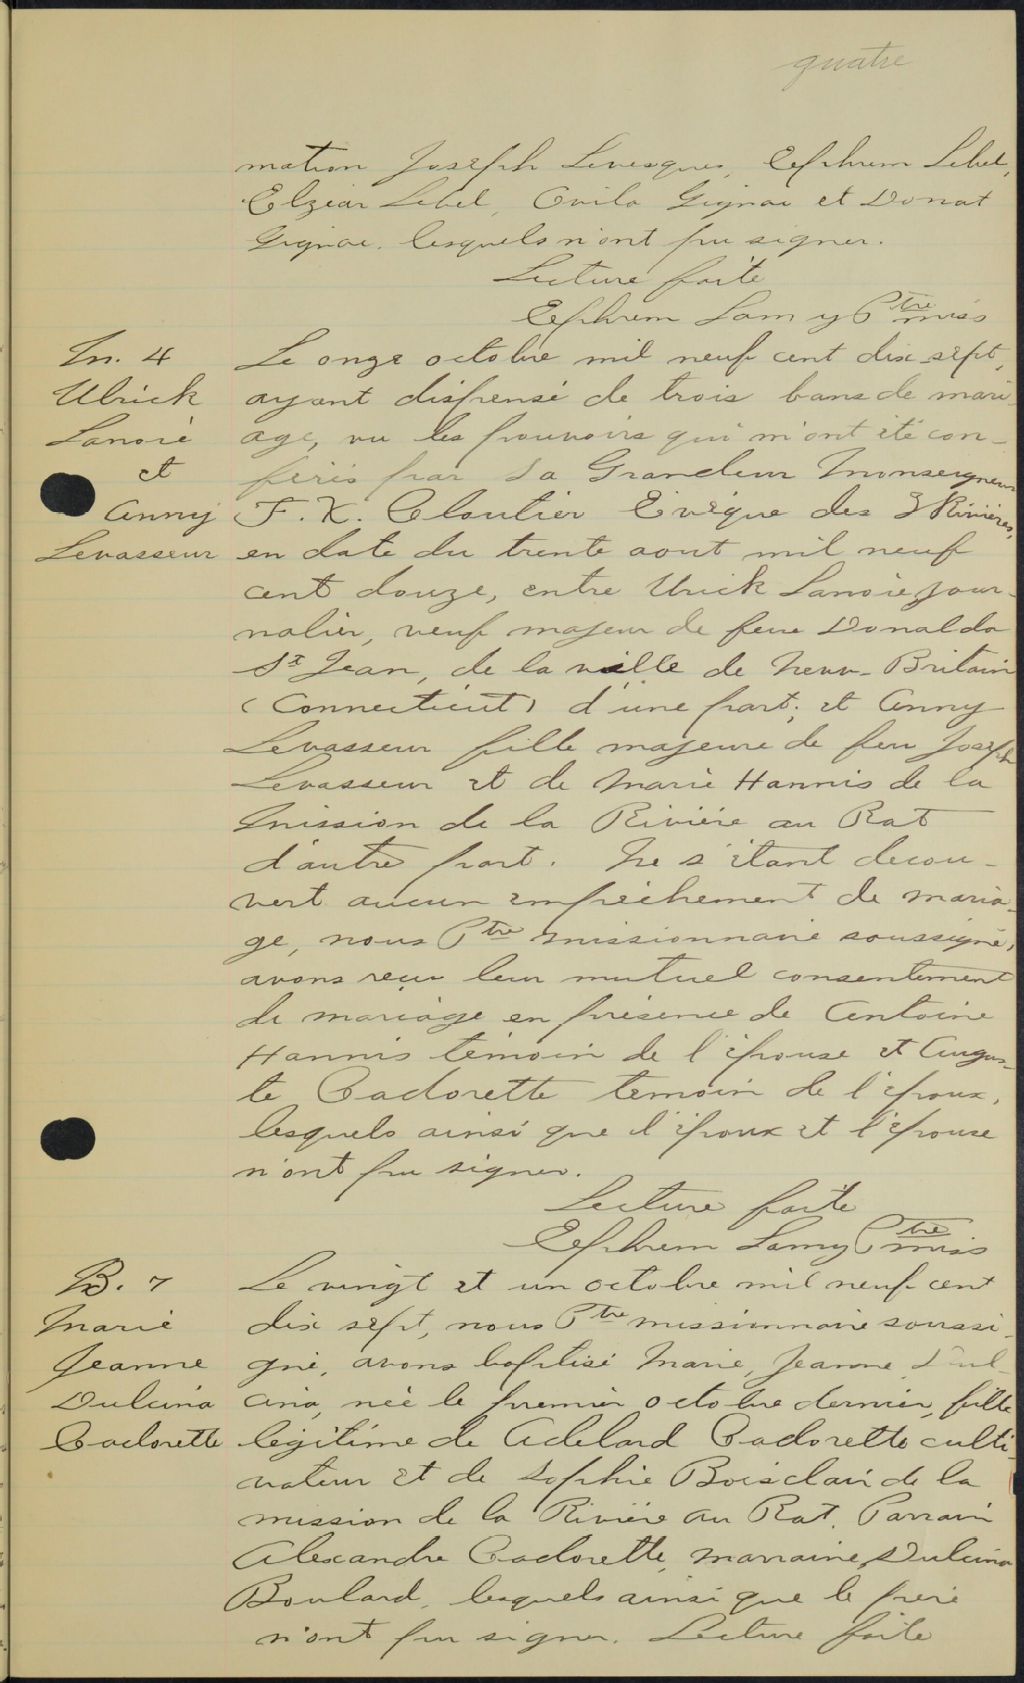 quatre
mation Joseph Levesques, Eephrem Lebel,
Elzéar Lebel, Ovila Gignac et Donat
Gignac. lesquels n'ont pu signer.
Lecture faite
Eephrem Lamy Ptre miss
M. 4
Ulrick
Lanoie
et
Anny
Levasseur
Le onze octobre mil neuf cent dix sept,
ayant dispensé de trois bans de mari-
age, vu les pouvoirs qui m'ont été con-
férés par Sa Grandeur Monseigneur
F. X. Cloutier Evêque des 3 Rivières,
en date du trente aout mil neuf
cent douze, entre Urick Lanoie, jour-
nalier, veuf majeur de feue Donalda
St Jean, de la ville de New-Britain
(Connecticut) d'une part; et Anny
Levasseur fille majeure de feu Joseph
Levasseur et de Marie Hannis de la
Mission de la Rivière au Rat
d'autre part. Ne s'étant decou-
vert aucun empêchement de maria-
ge, nous Ptre missionnaire soussigné,
avons reçu leur mutuel consentement
de mariage en présence de Antoine
Hannis témoin de l'épouse et Augus-
te Cadorette temoin de l'époux,
lesquels ainsi que l'époux et l'épouse
n'ont pu signer.
Lecture faite
Eephrem Lamy Ptre miss
B. 7
Marie
Jeanne
Dulcina
Cadorette
Le vingt et un octobre mil neuf cent
dix sept, nous Ptre missionnaire soussi-
gné, avons baptisé Marie, Jeanne Dul-
cina, née le premier octobre dernier, fille
légitime de Adelard Cadorette culti-
vateur et de Sophie Boisclair de la
mission de la Rivière au Rat. Parrain
Alexandre Cadorette, marraine, Dulcina
Boulard, lesquels ainsi que le père
n'ont pu signer. Lecture faite